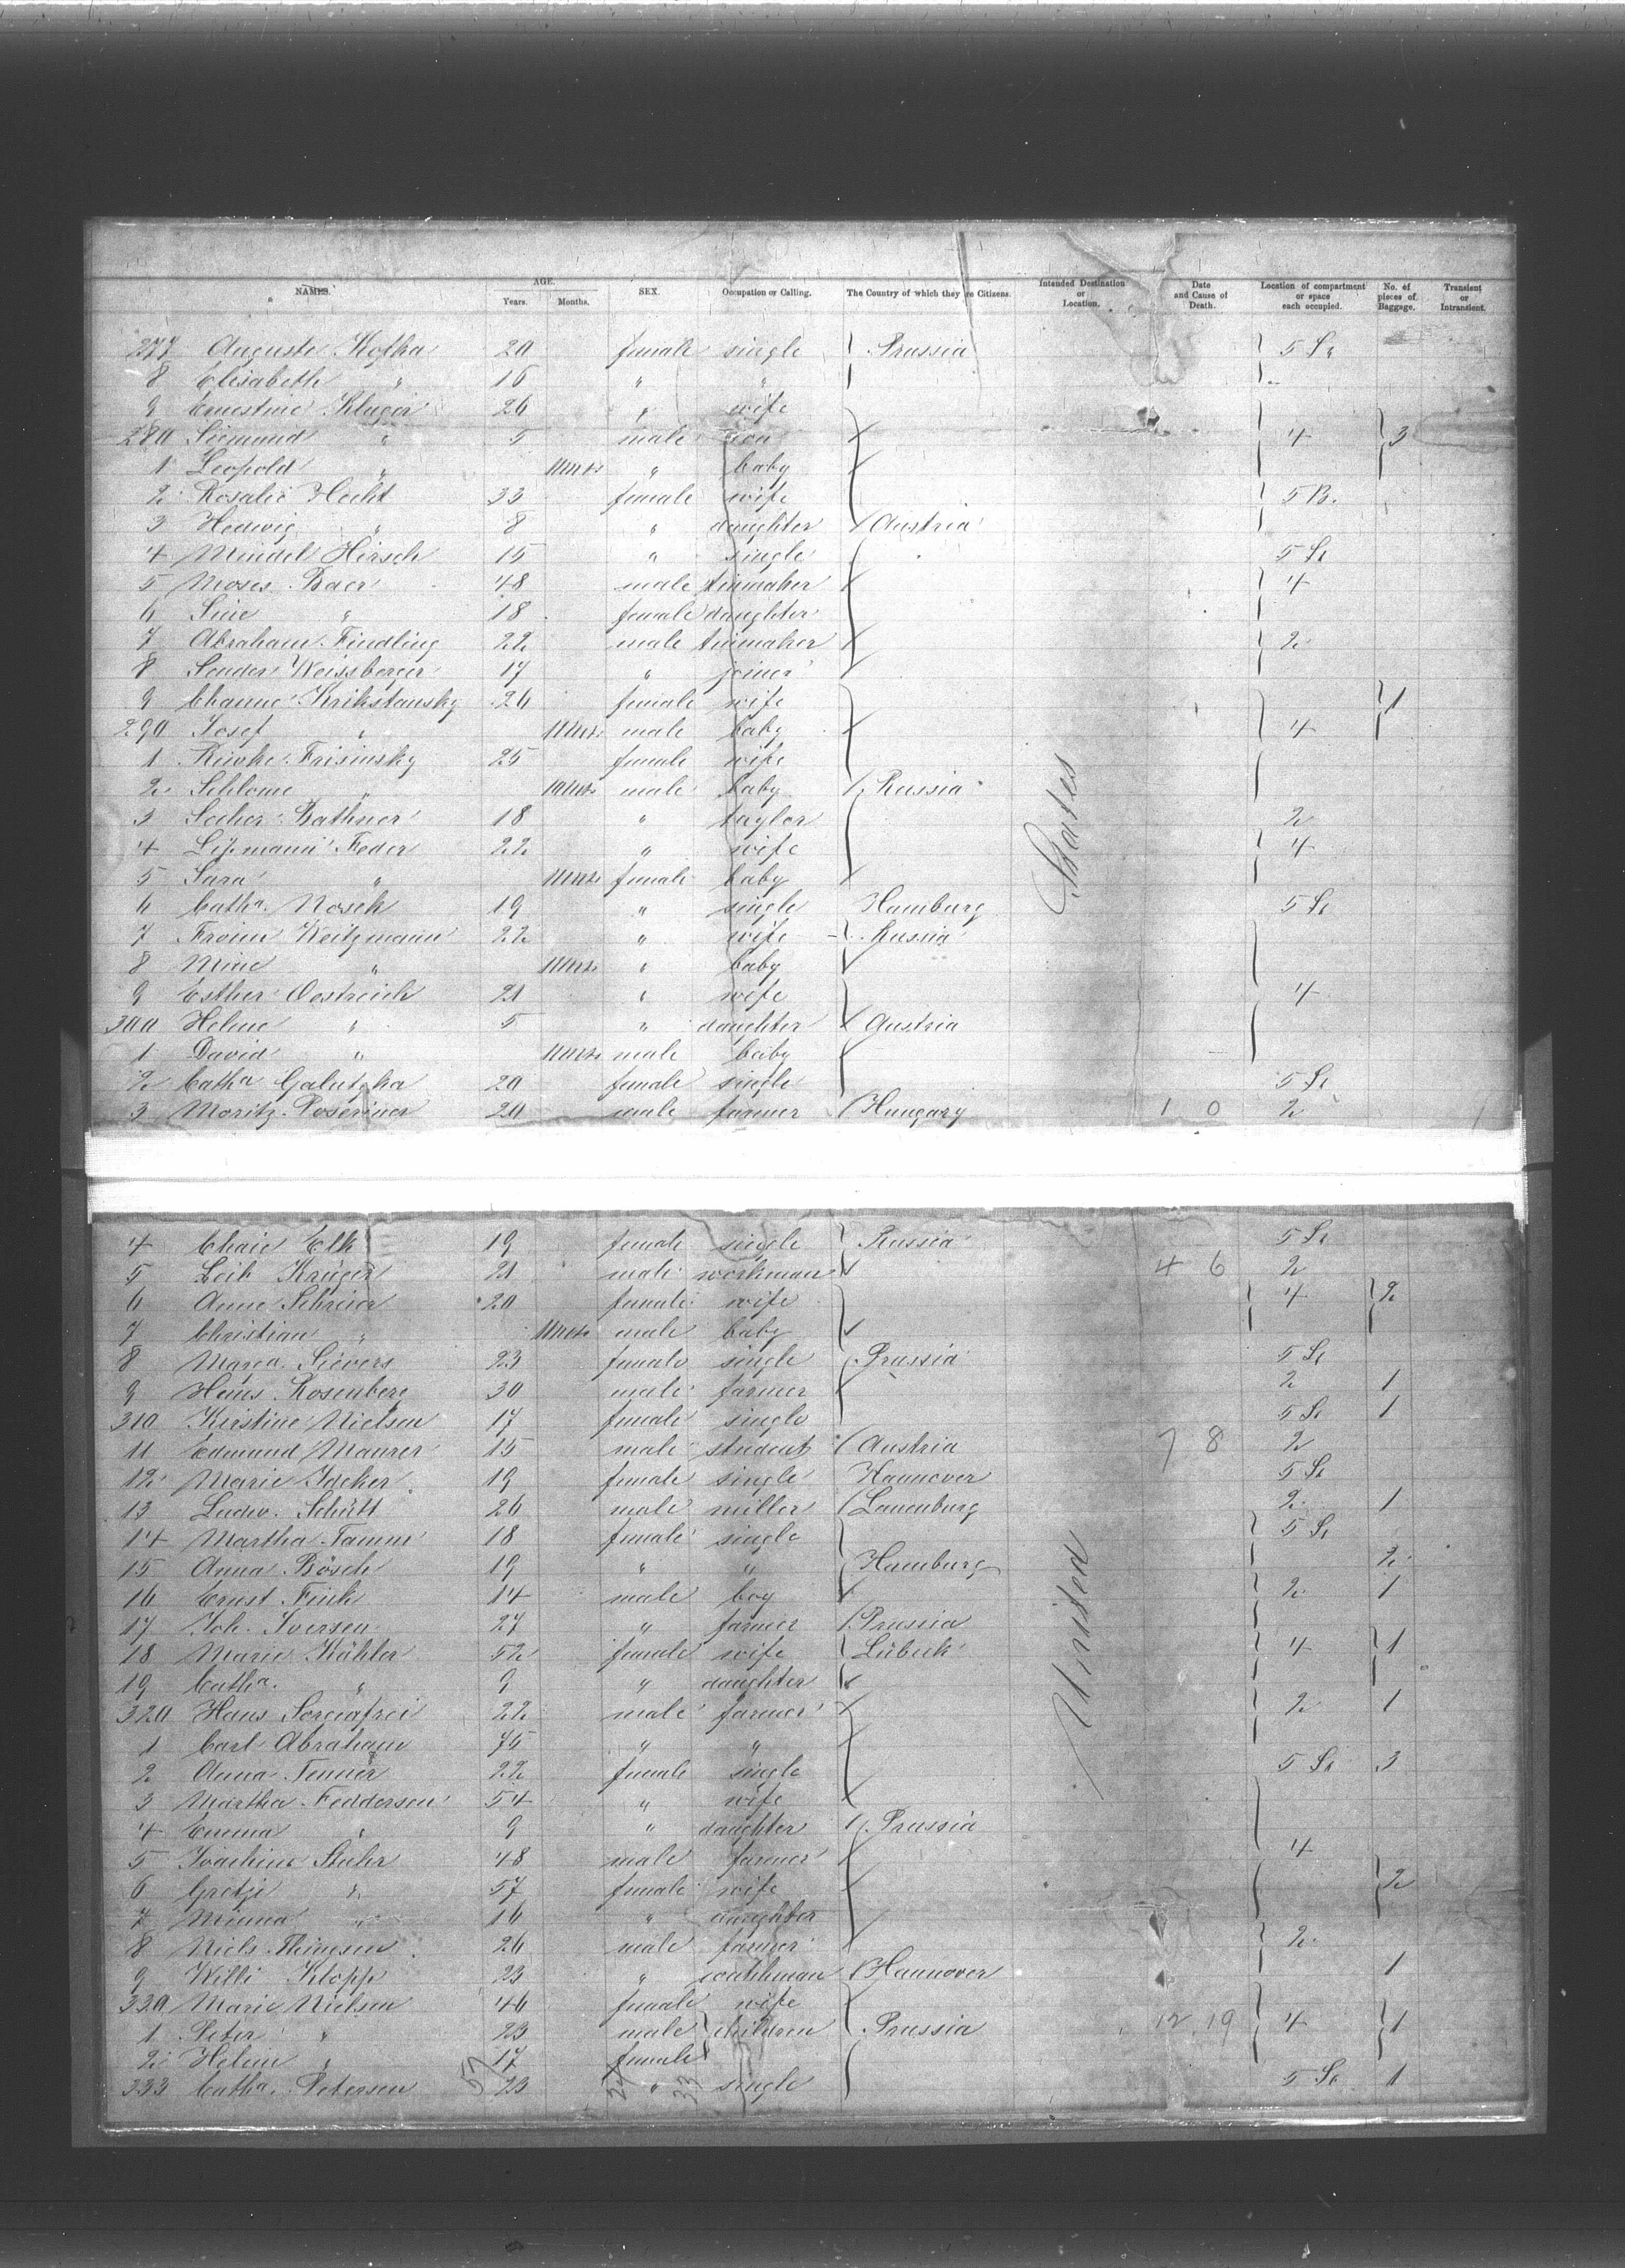 NAMES. AGE. Years. Months. SEX. Occupation or Calling. The Country of which they are Citizens. Intended Destination or Location. Date and Cause of Death. Location of compartment or space each occupied. No. of pieces of Baggage. Transient or Intransient.
277 Auguste Kofka 20 female single Prussia 5 St
8 Elisabeth " 16 " "
9 Ernestine Kluger 26 " wife
280 Siemund " 5 male son 4 3
1 Leopold " 11 mts " baby
2 Rosalie Hecht 33 female wife 5 B.
3 Hedwig " 8 " daughter Austria
4 Mindel Hirsch 15 " single 5 St
5 Moses Baer 48 male tinmaker 4
6 Sine " 18 female daughter
7 Abraham Findling 22 male tinmaker 2
8 Sender Weissberger 17 " joiner
9 Channe Krikstansky 26 female wife 1
290 Josef " 11 mts male baby 4
1 Riwke Frisinsky 25 female wife
2 Schlome " 10 mts male baby Russia
3 Socher Bathner 18 " taylor 2
4 Lipmann Feder 22 " wife 4
5 Sara " 11 mts female baby
6 Catha. Nosek 19 " single Hamburg 5 St
7 Froim Weitzmann 22 " wife Russia
8 Mine " 11 mts " baby
9 Esther Oestreich 21 " wife 4
300 Helene " 5 " daughter Austria
1 David " 11 mts male baby
2 Catha Galutzka 20 female single 5 St
3 Moritz Poseriner 20 male farmer Hungary 1 0 2
States
4 Chaie Elk 19 female single Russia 5 St
5 Leib Krüger 21 male workman 4 6 2
6 Anne Schreier 20 female wife 4 2
7 Christian " 11 mts male baby
8 Marga. Sievers 23 female single Prussia 5 St
9 Hans Rosenberg 30 male farmer 2 1
310 Kirstine Nielsen 17 female single 5 St 1
11 Edmund Maurer 15 male student Austria 7 8 2
12 Marie Jacker 19 female single Hannover 5 St
13 Ludw. Schütt 26 male miller Lauenburg 2 1
14 Martha Tamm 18 female single 5 St
15 Anna Bösch 19 " " Hamburg 2
16 Ernst Fink 14 male boy 2 1
17 Joh. Iversen 27 " farmer Prussia
18 Marie Kähler 52 female wife Lübeck 4 1
19 Catha. " 9 " daughter
320 Hans 22 male farmer 2 1
1 Carl Abraham 75 " "
2 Anna Tenner 22 female single 5 St 3
3 Martha Feddersen 54 " wife
4 Emma " 9 " daughter Prussia
5 Joachim Stuhr 48 male farmer 4
6 Gretje " 57 female wife 2
7 Minna " 16 " daughter
8 Niels Thimsen 26 male farmer 2
9 Willi Klopp 23 " workman Hannover 1
330 Marie Nielsen 46 female wife
1 Peter " 23 male children Prussia 12 19 4 1
2 Helene " 17 female
333 Catha. Petersen 23 " single 5 St 1
United
57 24 33